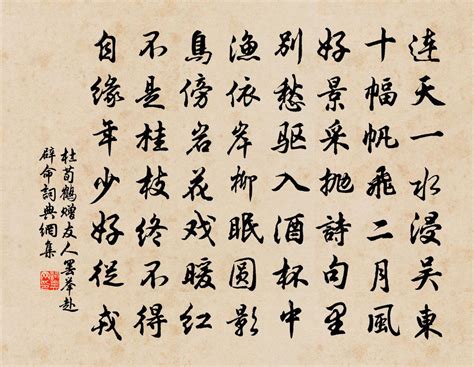 連天一水浸吳東
十幅帆飛二月風
好景采拋詩句里
別愁驅入酒杯中
漁依岸柳眠圓影
鳥傍岩花戲暖紅
不是桂枝終不得
自緣年少好從戎
杜荀鶴贈友人罷舉赴
辟命詞典網集